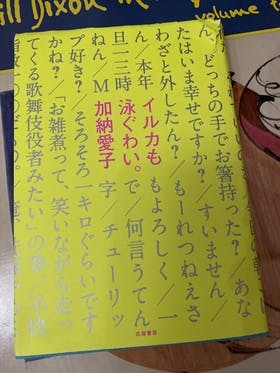 ill Dixon
volume t
ん、どっちの手でお箸持った？／あな
たはいま幸せですか？　すいません／
わざと外したん？／もーれつねえさ
ん／本年
イルカも
もよろしく／一
旦一三時
泳ぐわい。
で／何言うてん
ねん／M
加納愛子
字／チューリッ
プ好き？／そろそろ一キロぐらいです
かね？／「お雑煮って、笑いながら走っ
てくる歌舞伎役者みたい」の
／不快
筑摩書房